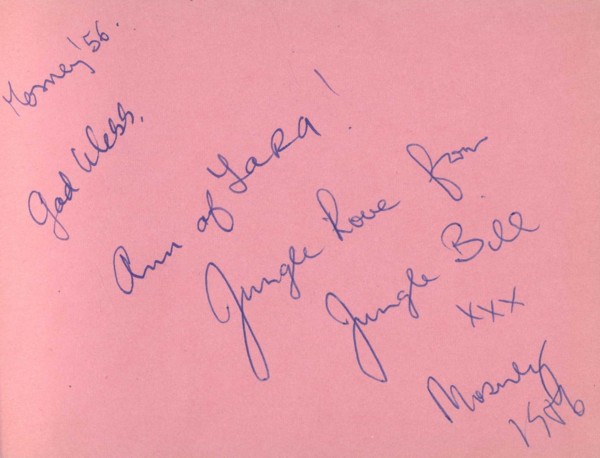 Mosney '56.
God Bless,
Ann of Tara!
Jungle Love from
Jungle Bill
xxx
Mosney
1956